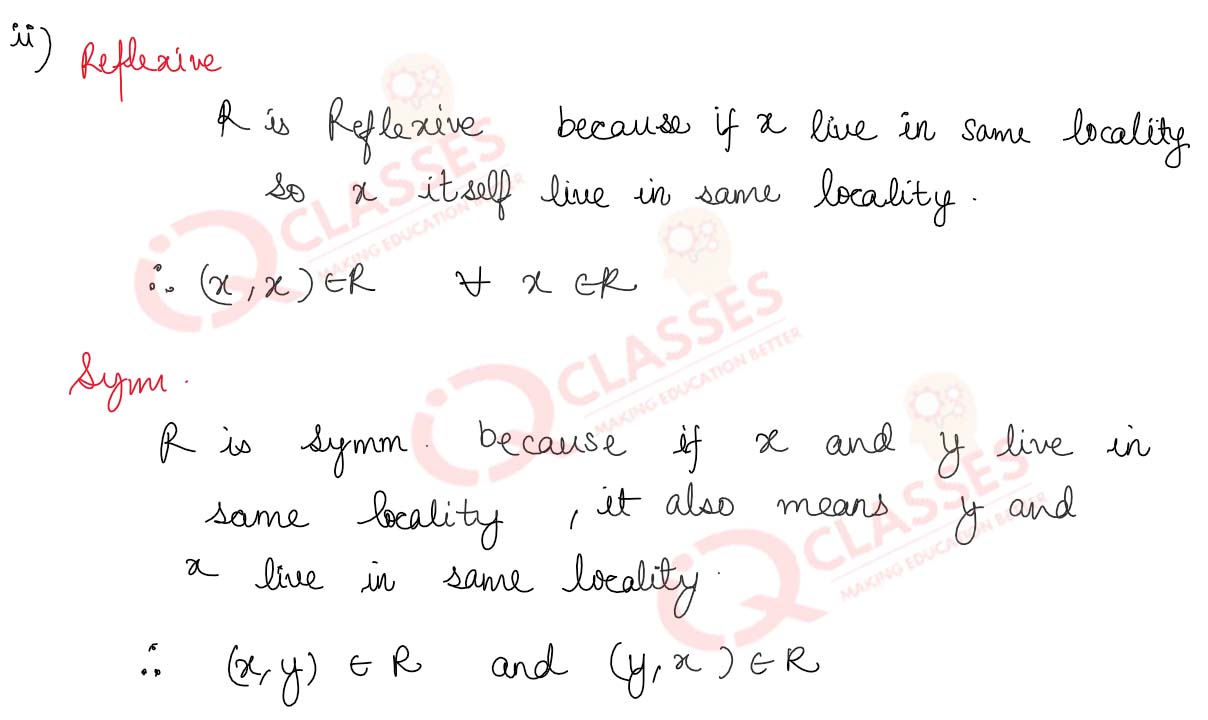 ii) Reflexive
R is Reflexive because if x live in same locality
so x itself live in same locality.
∴ (x, x) ∈ R ∀ x ∈ R
Symm.
R is symm. because if x and y live in
same locality, it also means y and
x live in same locality.
∴ (x, y) ∈ R and (y, x) ∈ R
CLASSES
MAKING EDUCATION BETTER
CLASSES
MAKING EDUCATION BETTER
CLASSES
MAKING EDUCATION BETTER